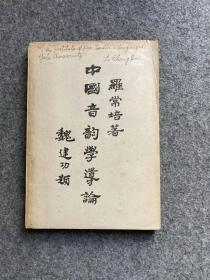 To the Institute of Far Eastern Languages,
Yale University
Lo Ch'ang-p'ei
羅常培著
中國音韵學導論
魏建功題